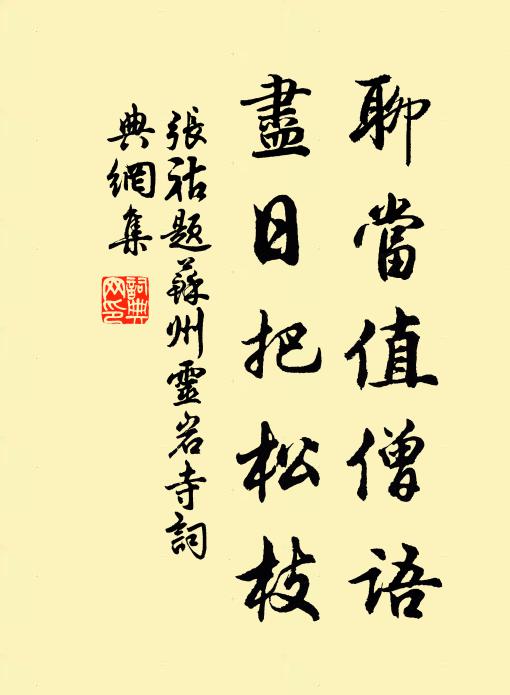 聊當值僧語
盡日把松枝
張祜題蘇州靈岩寺詞
典網集
詞典網印